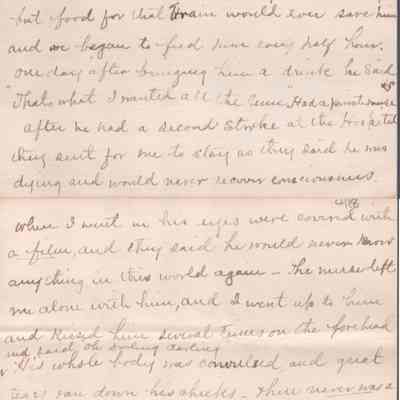 but food for that train would ever save him
and we began to feed him every half hour.
one day after bringing him a drink he said
"That's what I wanted all the time" Had a private nurse
after he had a second stroke at the Hospital
they sent for me to stay as they said he was
dying and would never recover consciousness.
when I went in his eyes were covered with
a film, and they said he would never know
anything in this world again – The nurse left
me alone with him, and I went up to him
and kissed him several times on the forehead
and said, oh darling darling
His whole body was convulsed and great
tears ran down his cheeks – there never was a